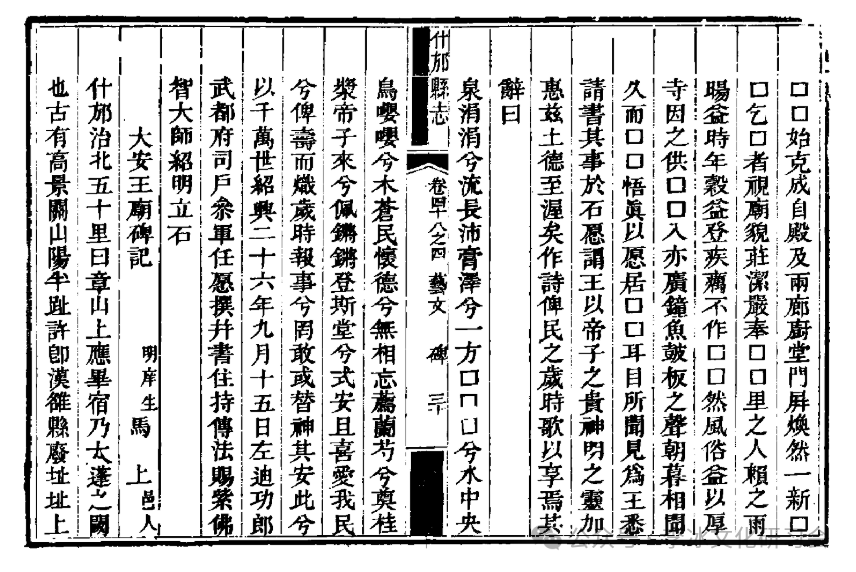 囗囗始克成自殿及兩廊廚堂門屏煥然一新囗
囗乞囗者視廟貌莊潔嚴奉囗囗里之人賴之雨
暘益時年穀益登疾癘不作囗囗然風俗益以厚
寺因之供囗囗入亦廣鐘魚鼓板之聲朝暮相聞
久而囗囗悟眞以愿居囗囗耳目所聞見爲王悉
請書其事於石愿謂王以帝子之貴神明之靈加
惠茲土德至渥矣作詩俾民之歲時歌以享焉其
辭曰
泉涓涓兮流長沛膏澤兮一方囗囗囗兮水中央
什邡縣志
卷四十八之四 藝文 碑 三十
鳥嚶嚶兮木蒼民懷德兮無相忘薦蘭芍兮奠桂
漿帝子來兮佩鏘鏘登斯堂兮式安且喜愛我民
兮俾壽而熾歲時報事兮罔敢或替神其安此兮
以千萬世紹興二十六年九月十五日左迪功郎
武都府司戶叅軍任愿撰幷書住持傳法賜紫佛
智大師紹明立石
大安王廟碑記 明庠生馬 上邑人
什邡治北五十里曰章山上應畢宿乃太蓬之闕
也古有高景關山陽半趾許卽漢雒縣廢址址上
公众号 文化研